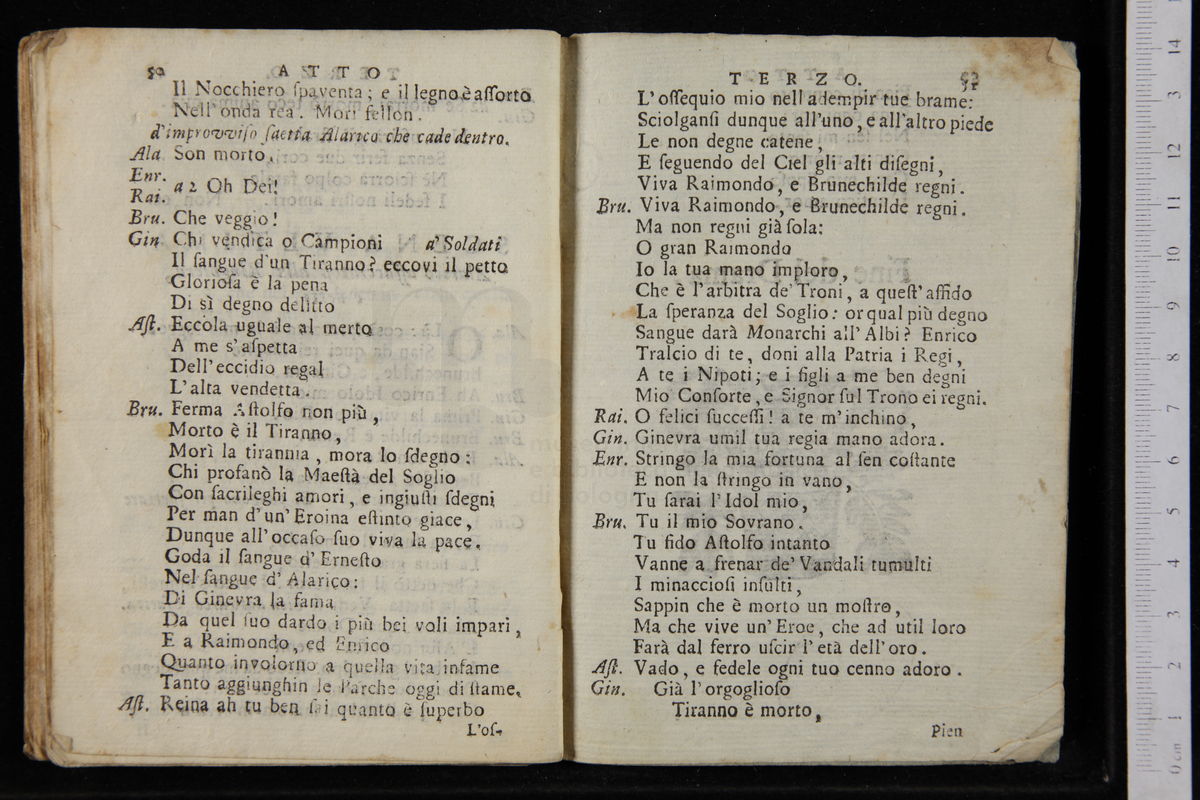 50 ATTO
Il Nocchiero ſpaventa; e il legno è aſſorto
Nell' onda rea. Mori fellon.
d'improvviſo ſaetta Alarico che cade dentro.
Ala Son morto.
Enr.
Rai. a 2 Oh Dei!
Bru. Che veggio!
Gin Chi vendica o Campioni a' Soldati
Il ſangue d'un Tiranno? eccovi il petto
Glorioſa è la pena
Di sì degno delitto
Aſt. Eccola uguale al merto
A me s'aſpetta
Dell'eccidio regal
L'alta vendetta.
Bru. Ferma Aſtolfo non più,
Morto è il Tiranno,
Morì la tirannia, mora lo ſdegno:
Chi profanò la Maeſtà del Soglio
Con ſacrileghi amori, e ingiuſti ſdegni
Per man d'un' Eroina eſtinto giace,
Dunque all'occaſo ſuo viva la pace.
Goda il ſangue d' Erneſto
Nel ſangue d' Alarico:
Di Ginevra la fama
Da quel ſuo dardo i più bei voli impari,
E a Raimondo, ed Enrico
Quanto involorno a quella vita infame
Tanto aggiunghin le Parche oggi di ſtame.
Aſt. Reina ah tu ben ſai quanto è ſuperbo
L'oſ-
TERZO.
L'oſſequio mio nell adempir tue brame:
Sciolganſi dunque all'uno, e all'altro piede
Le non degne catene,
E ſeguendo del Ciel gli alti diſegni,
Viva Raimondo, e Brunechilde regni.
Bru. Viva Raimondo, e Brunechilde regni.
Ma non regni già ſola:
O gran Raimondo
Io la tua mano imploro,
Che è l'arbitra de' Troni, a queſt' affido
La ſperanza del Soglio: or qual più degno
Sangue darà Monarchi all' Albi? Enrico
Tralcio di te, doni alla Patria i Regi,
A te i Nipoti; e i figli a me ben degni
Mio Conſorte, e Signor ſul Trono ei regni.
Rai. O felici ſucceſſi! a te m'inchino,
Gin. Ginevra umil tua regia mano adora.
Enr. Stringo la mia fortuna al ſen coſtante
E non la ſtringo in vano,
Tu ſarai l'Idol mio,
Bru. Tu il mio Sovrano.
Tu fido Aſtolfo intanto
Vanne a frenar de' Vandali tumulti
I minaccioſi inſulti,
Sappin che è morto un moſtro,
Ma che vive un' Eroe, che ad util loro
Farà dal ferro uſcir l'età dell'oro.
Aſt. Vado, e fedele ogni tuo cenno adoro.
Gin. Già l'orgoglioſo
Tiranno è morto,
Pien